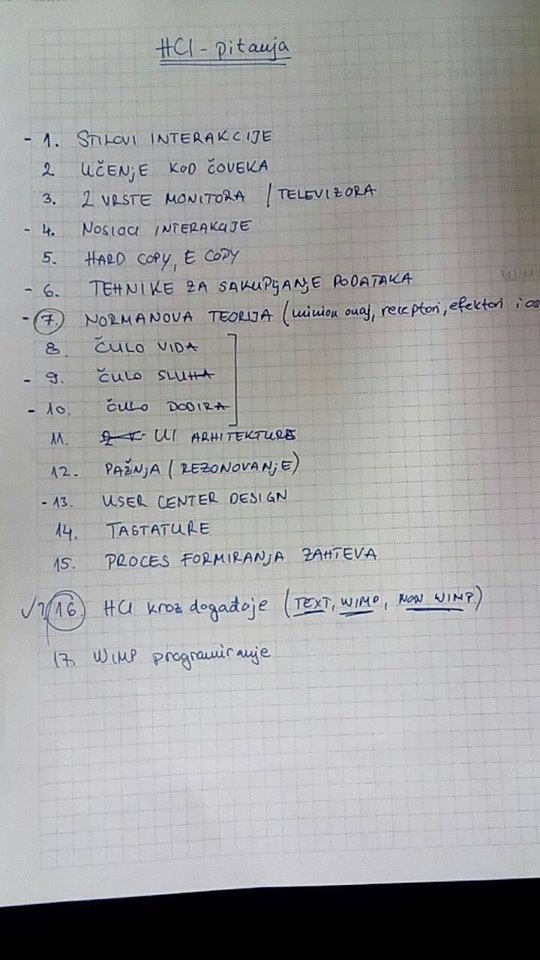 HCI - pitanja
- 1. STILOVI INTERAKCIJE
2. UČENJE KOD ČOVEKA
3. 2 VRSTE MONITORA / TELEVIZORA
- 4. NOSIOCI INTERAKCIJE
5. HARD COPY, E COPY
- 6. TEHNIKE ZA SAKUPLJANJE PODATAKA
- 7. NORMANOVA TEORIJA (minion onaj, receptori, efektori i os
8. ČULO VIDA
- 9. ČULO SLUHA
- 10. ČULO DODIRA
11. UI ARHITEKTURE
12. PAŽNJA (REZONOVANJE)
- 13. USER CENTER DESIGN
14. TASTATURE
15. PROCES FORMIRANJA ZAHTEVA
√? 16. HCI kroz događaje (TEXT, WIMP, NON WIMP)
17. WIMP programiranje